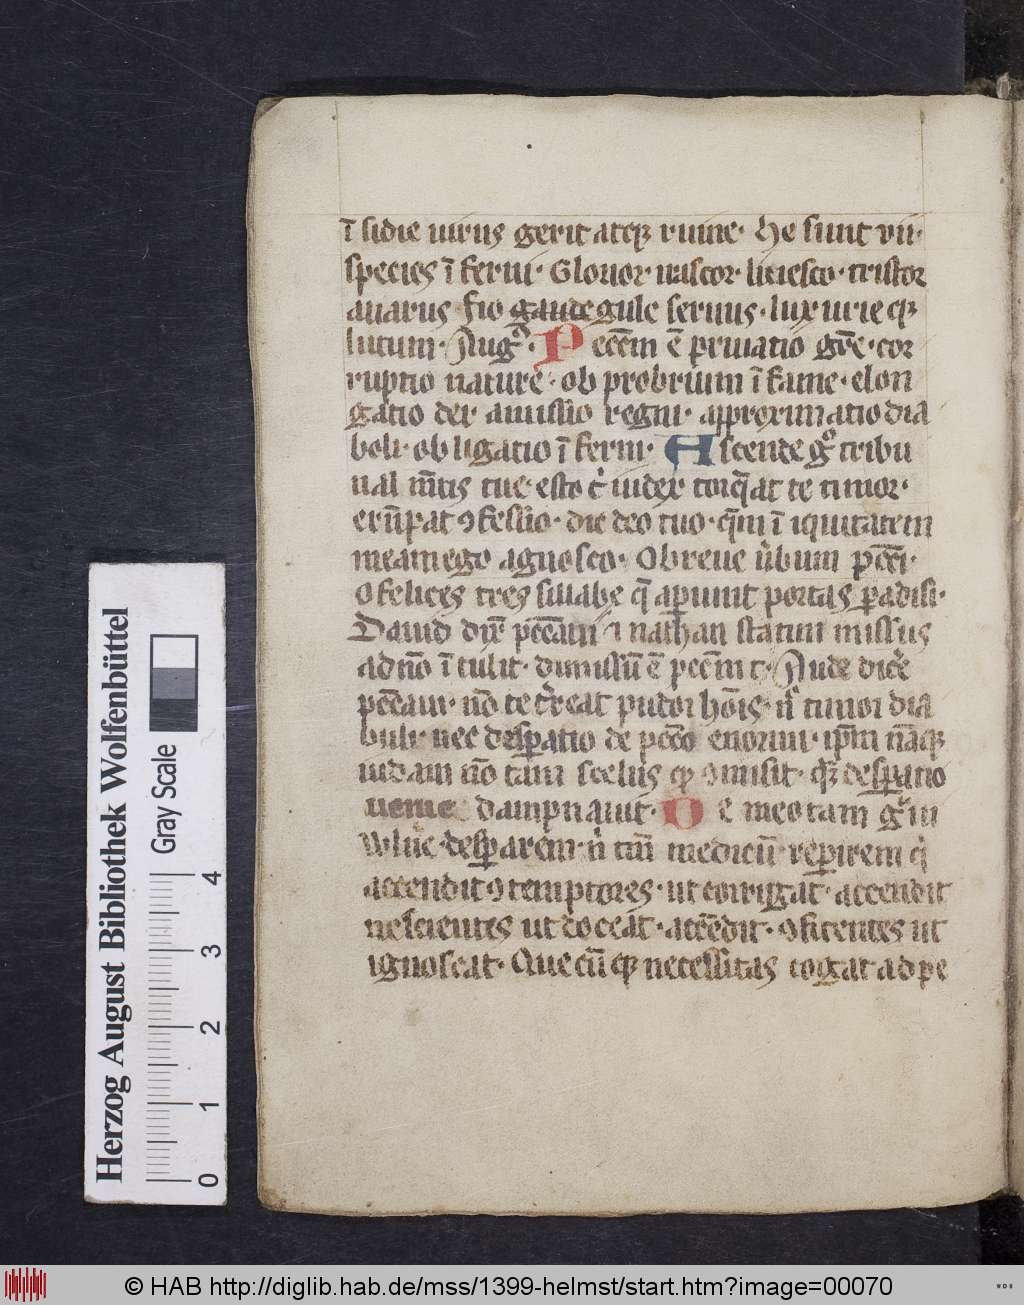 ī sidie uirus gerit atqꝫ ruine. He sunt vii.
species ī ferni. Glorior. nascor. liuesco. tristor
auarus fio gaude gule seruus. luxurie qꝫ
lutum. Augꝰ. Peccm̄ ē priuatio gr̄e. cor
ruptio nature. ob probrium ī fame. elon
gatio dei. amissio regni. approximatio dia
boli. obligatio ī ferni. Ascende gͦ tribu
nal mētis tue. esto t iudex torq̄at te timor.
erūpat ꝯfessio. dic deo tuo. qm̄ ī iquitatem
meam ego agnosco. O breue ubum pcc̄i.
O felices tres sillabe q̄ apiunt portas padisi.
Dauid dix pcc̄aui ⁊ nathan statim missus
ad nō ī tulit. dimissū ē pcc̄m t. Aude dice
pcc̄aui. nō te treat pudor hoīs. n timor dia
buli. nec despatio de pcc̄o enormi. ipm̄ nāqꝫ
iudam nō tam scelus qͦ ꝯmisit. qꝫ despatio
uenie dampnauit. De meo tam gui
wlnē desparem. n tm̄ medicū repirem q
accendit ꝯtemptores. ut corrigat. accendit
nescientes ut doceat. accēdit. ꝯfitentes ut
ignoscat. Que cū qꝫ necessitas cogat ad pe
Herzog August Bibliothek Wolfenbüttel
Gray Scale
0 1 2 3 4
© HAB http://diglib.hab.de/mss/1399-helmst/start.htm?image=00070